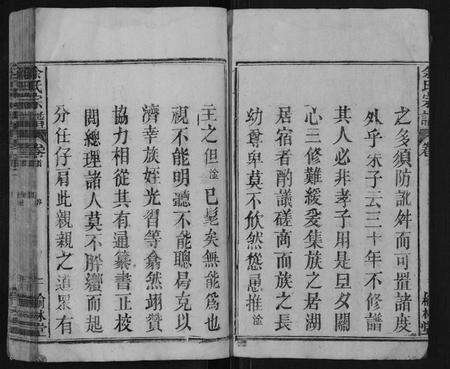 之多須防訛舛而可置諸度
外乎朱子云三十年不修譜
其人必非孝子用是旦夕關
心三修難緩爰集族之居湖
居宿者酌議磋商而族之長
幼尊卑莫不欣然慫恿推淦
主之但淦已髦矣無能爲也
視不能明聽不能聰曷克以
濟幸族姪光習等翕然翊贊
協力相從其有通纂書正校
閱總理諸人莫不胼襼而起
分任仔肩此親親之道累有
余氏宗譜
卷